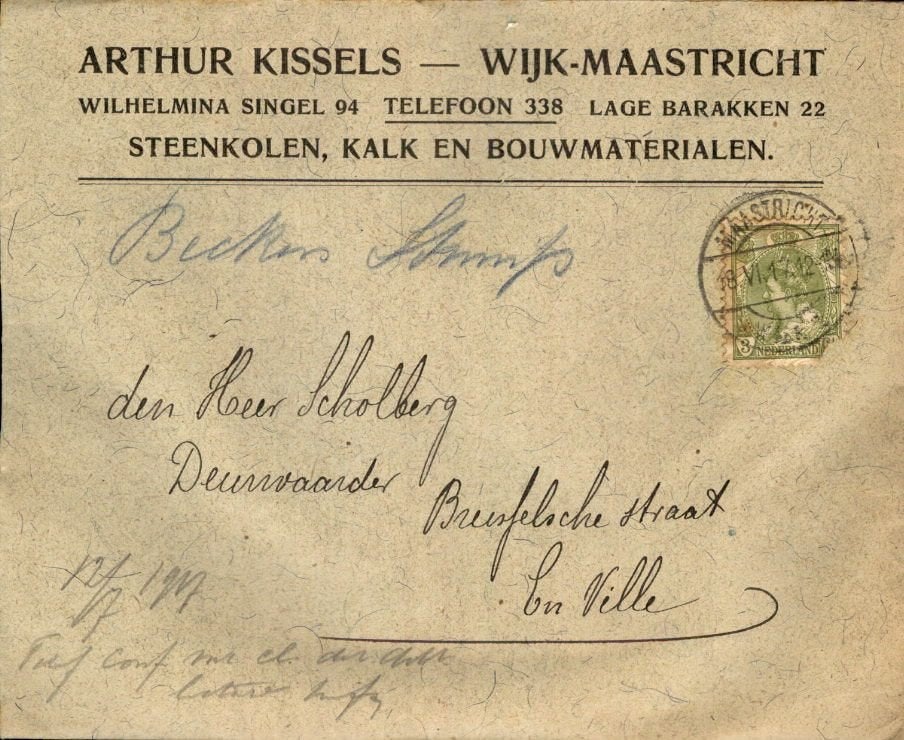 ARTHUR KISSELS — WIJK-MAASTRICHT
WILHELMINA SINGEL 94 TELEFOON 338 LAGE BARAKKEN 22
STEENKOLEN, KALK EN BOUWMATERIALEN.
MAASTRICHT
3 NEDERLAND
den Heer Scholberg
Deurwaarder
Brusselsche straat
En Ville
12/7 1917